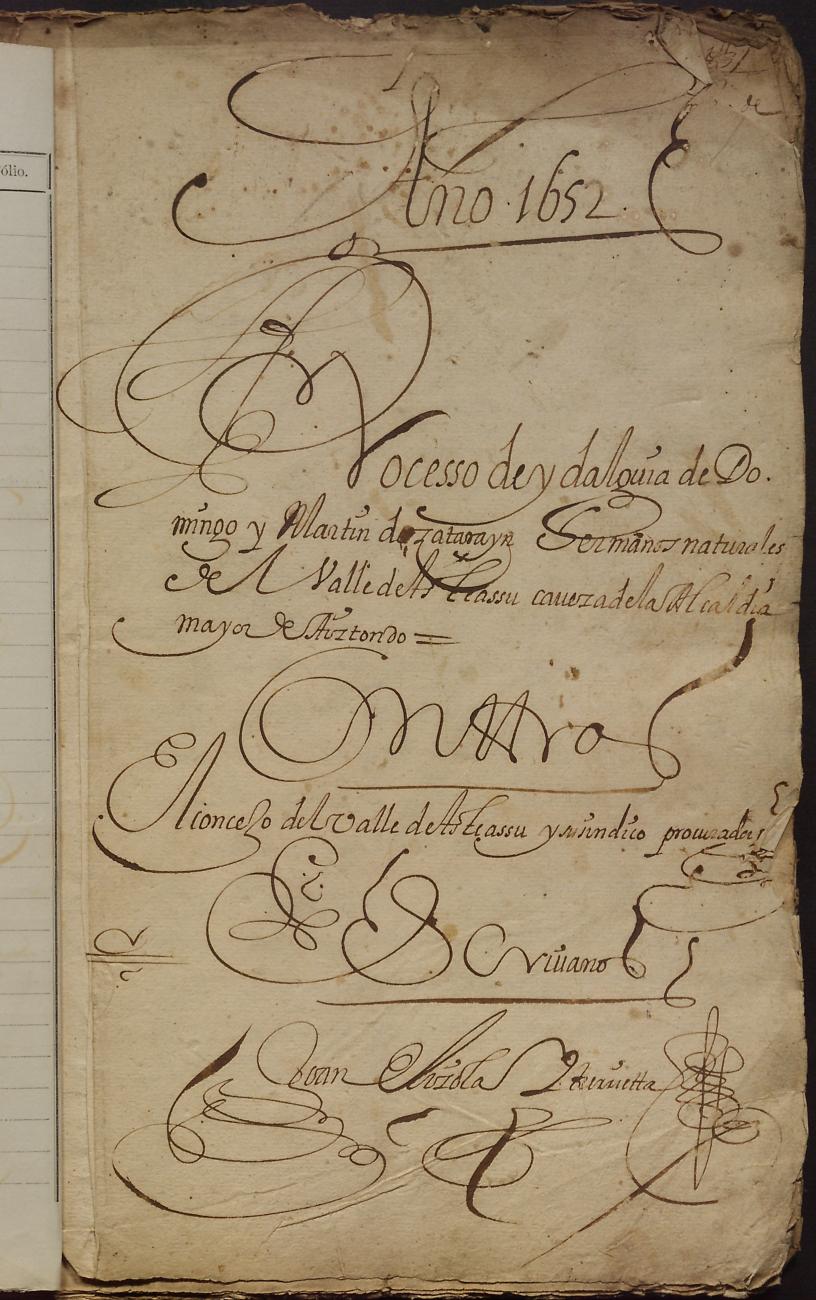 ólio.
de
Año 1652
Processo de ydalguia de Do.
mingo y Martin de zatarayn Hermanos naturales
del Valle de Asteassu caueza de la Alcaldia
mayor de Aiztondo =
Contra
El conceJo del valle de Asteassu y su sindico procurador
Escriuano
Joan